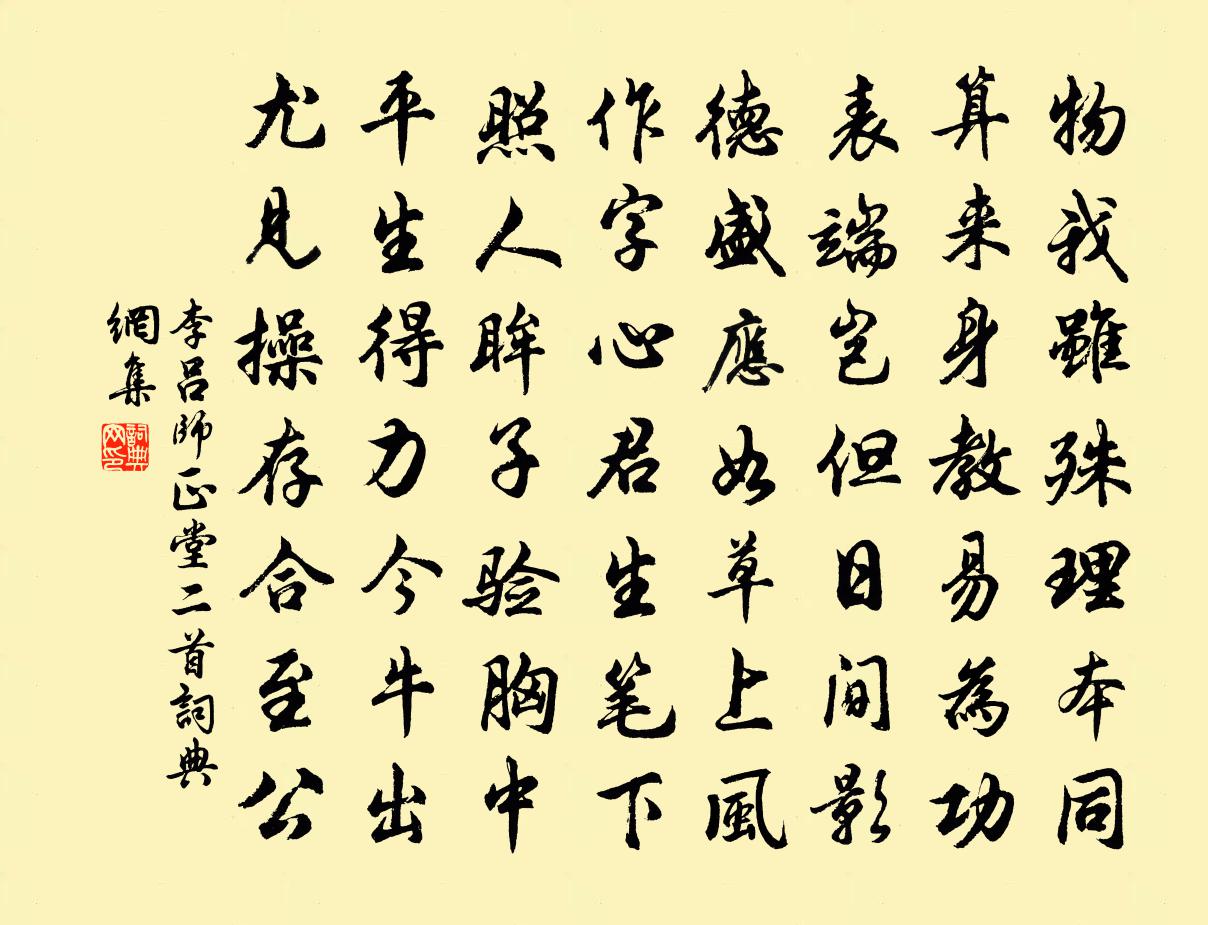 物我雖殊理本同
算来身教易為功
表端岂但日間影
德盛應如草上風
作字心君生笔下
照人眸子验胸中
平生得力今牛出
尤見操存合至公
李呂師正堂二首詞典
網集
詞典
网印